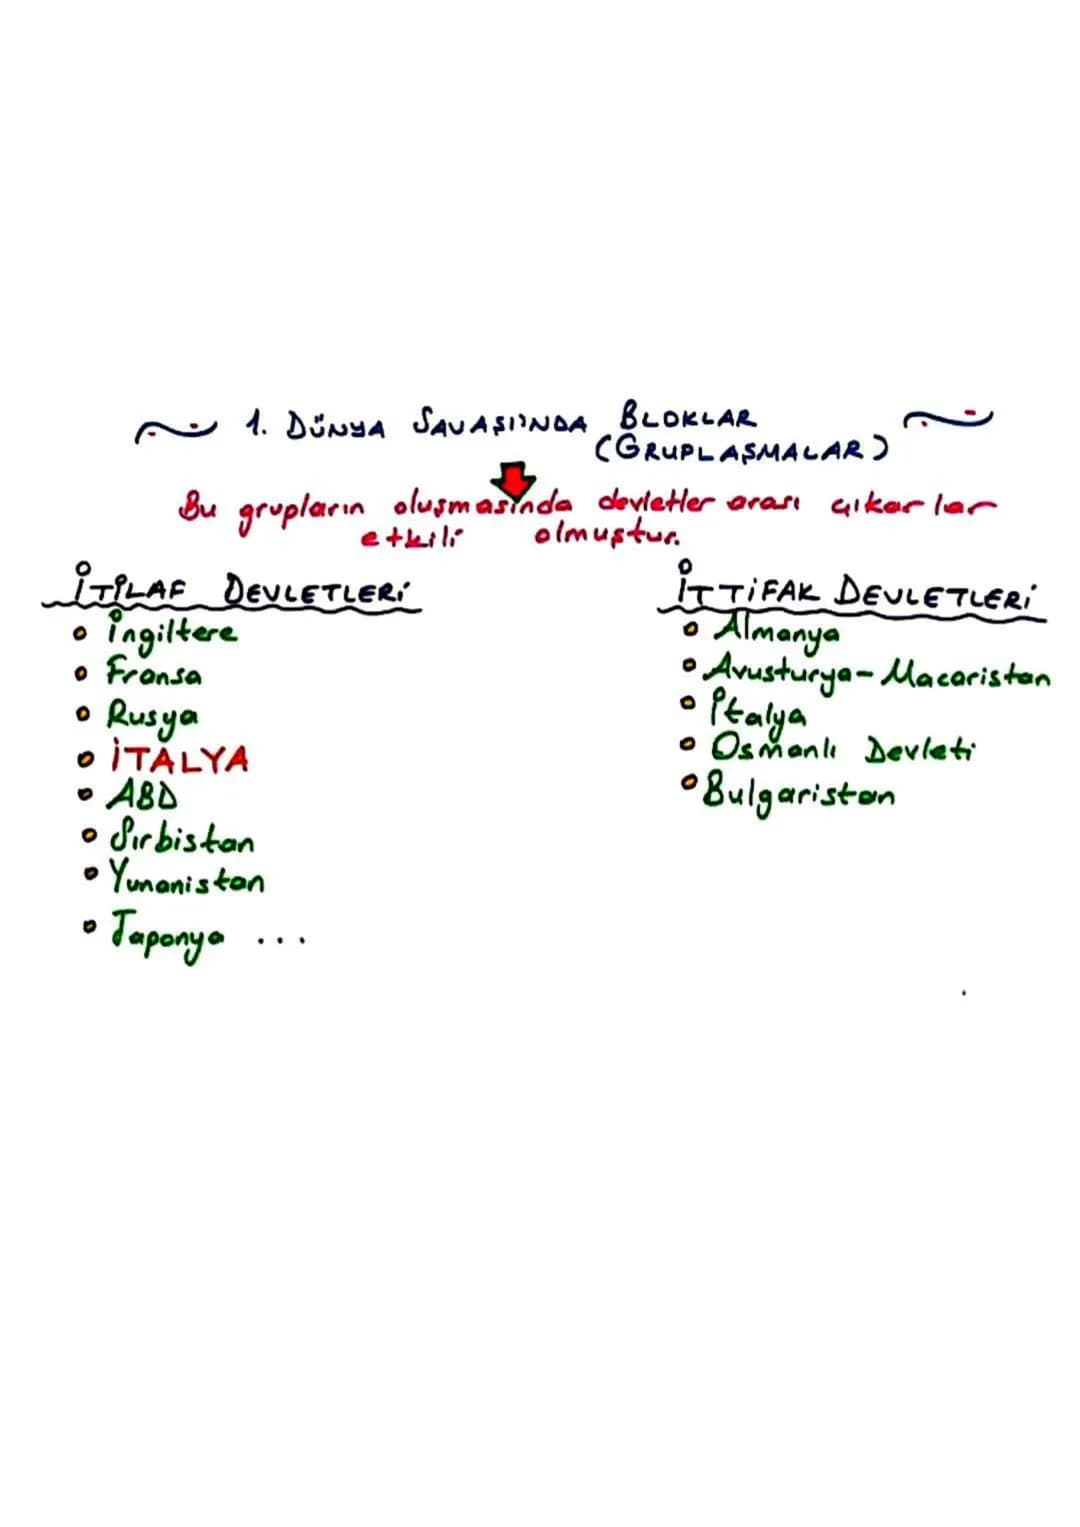 1. DÜNYA SAVAŞI'NDA BLOKLAR
(GRUPLAŞMALAR)
Bu grupların oluşmasında devletler arası çıkarlar
etkili olmuştur.
İTİLAF DEVLETLERİ
İngiltere
Fransa
Rusya
İTALYA
ABD
Sırbistan
Yunanistan
Japonya ...
İTTİFAK DEVLETLERİ
Almanya
Avusturya-Macaristan
İtalya
Osmanlı Devleti
Bulgaristan